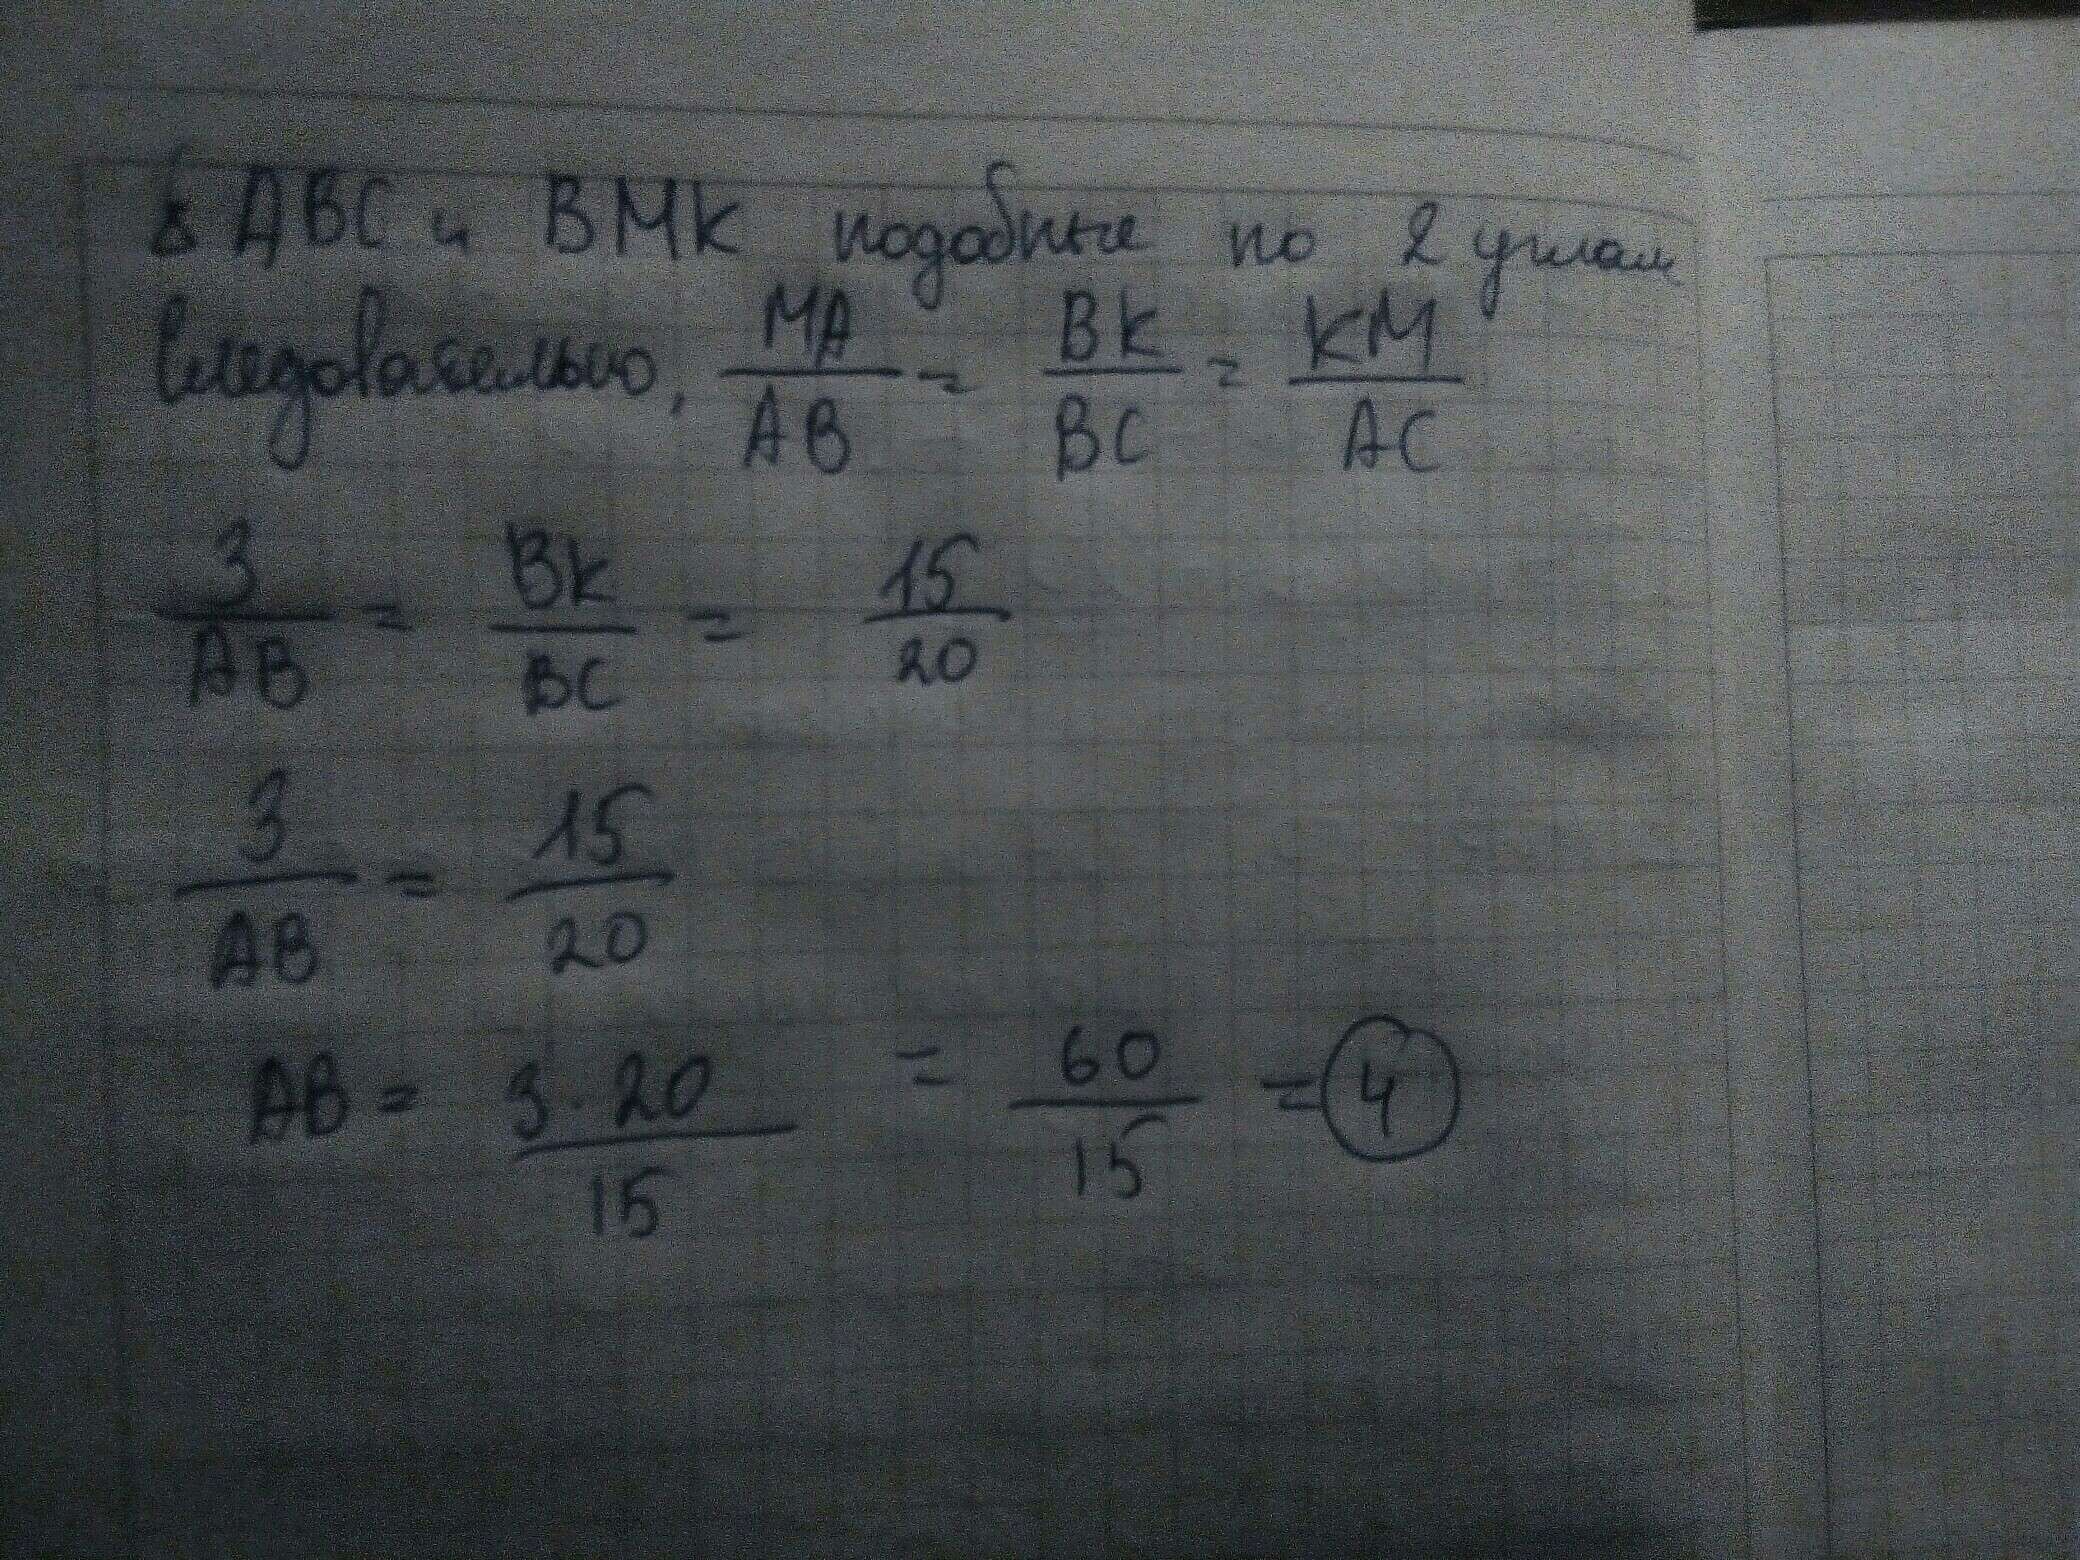 Δ ABC и BMK подобные по 2 углам
Следовательно, MA/AB = BK/BC = KM/AC
3/AB = BK/BC = 15/20
3/AB = 15/20
AB = 3·20/15 = 60/15 = 4